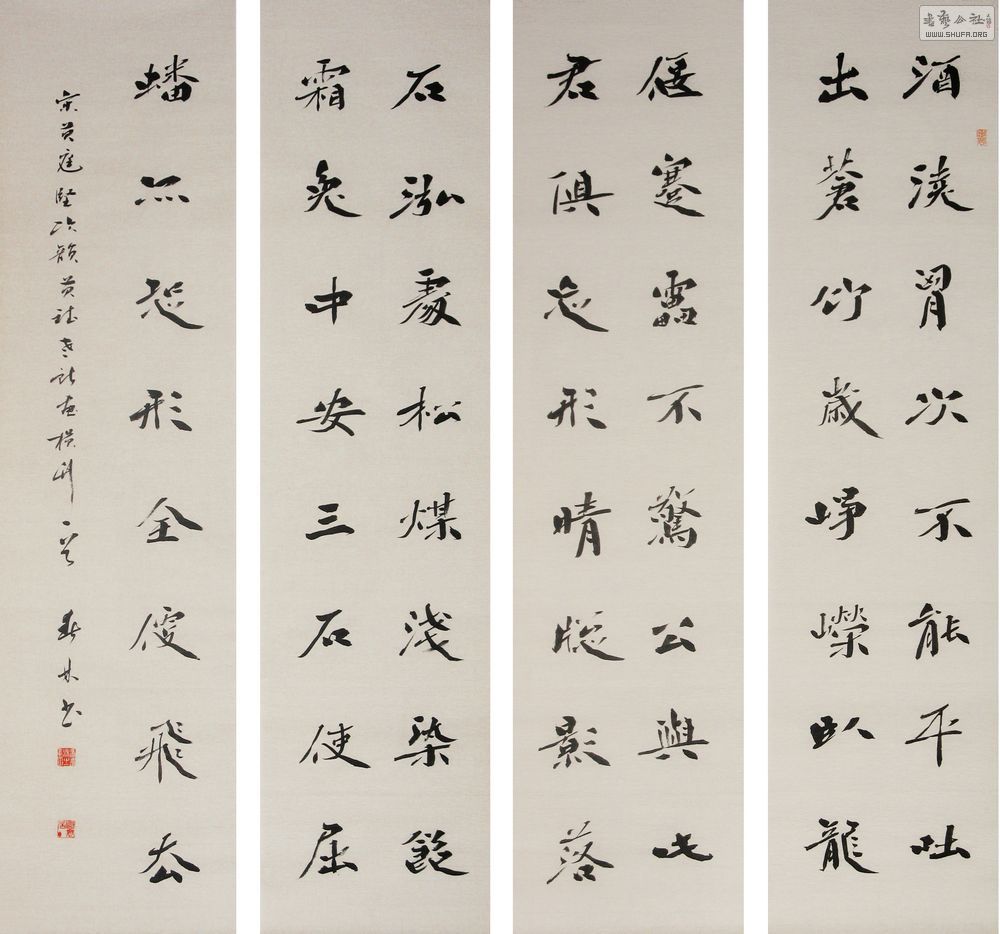 書藝公社
WWW.SHUFA.ORG
酒澆胷次不能平吐
出蒼竹歲崢嶸臥龍
偃蹇靁不驚公與此
君俱忘形晴牕影落
石泓處松煤淺染飽
霜兔中安三石使屈
蟠亦恐形全便飛去
宋黃庭堅次韻黃斌老所畫橫竹一首 春林书